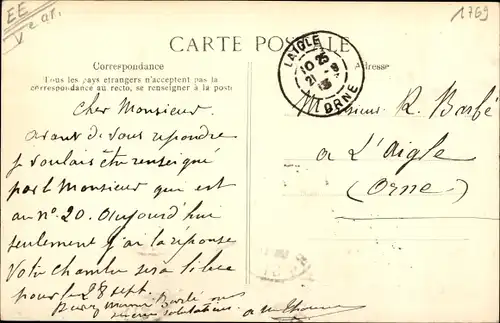 EE
V
1769
CARTE POSTALE
Correspondance
Adresse
Tous les pays étrangers n'acceptent pas la
correspondance au recto, se renseigner à la poste
LAIGLE
10 25
21 -9
13
ORNE
Cher Monsieur
avant de vous répondre
je voulais être renseigné
par le Monsieur qui est
au n° 20. Aujourd'hui
seulement j'ai la réponse
Votre chambre sera libre
pour le 28 sept.
Monsieur R. Barbé
a L'Aigle
(Orne)